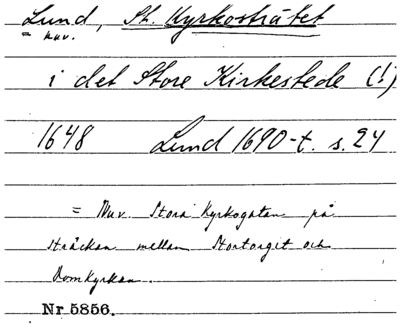 Lund, St. Kyrkosträtet
= nuv.
i det Store Kirkestede (!)
1648 Lund 1690-t. s. 24
= Nuv. Stora Kyrkogatan på
sträckan mellan Stortorget och
Domkyrkan.
Nr 5856.